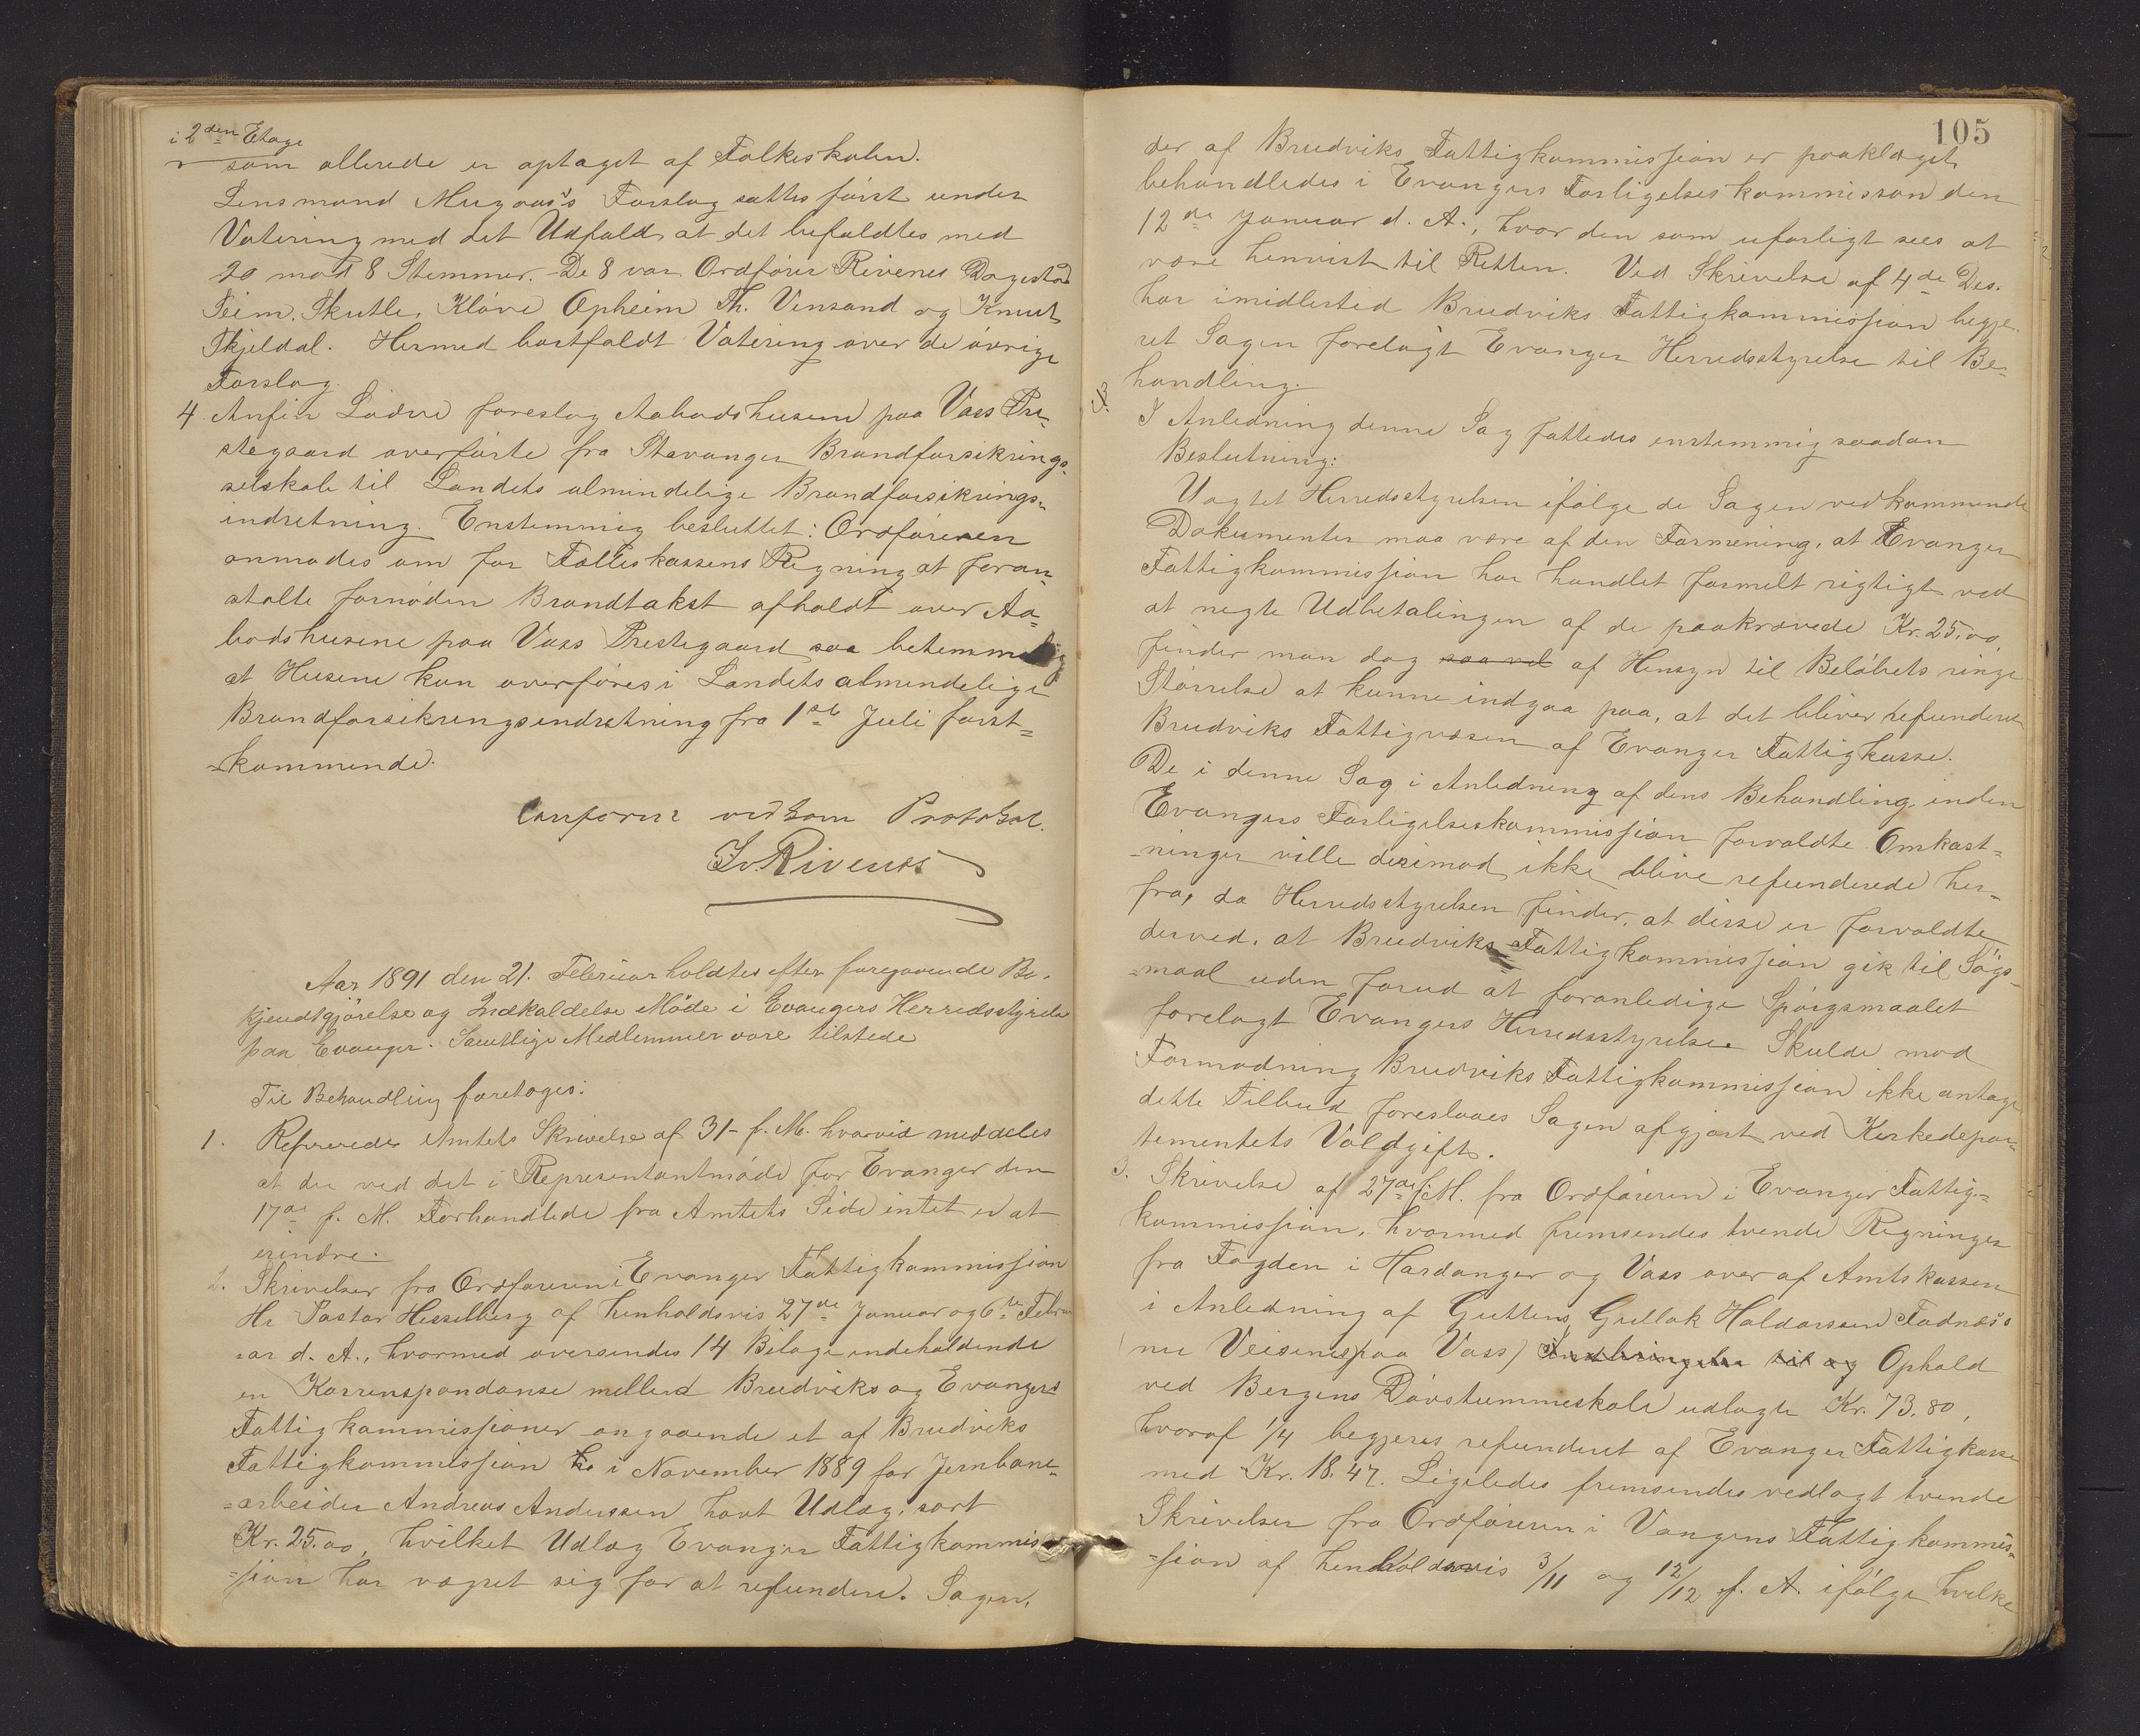 i 2den Etage
som allerede er optaget af Folkeskolen.
Lensmand Mugaas's Forslag sattes først under
Votering med det Udfald, at det befaldtes med
20 mod 8 Stemmer. De 8 var Ordfører Rivenes Dagestad
Seim, Skutle, Kløve Opheim Th. Vinsand og Knut
Skjeldal. Hermed bortfaldt Votering over de øvrige
Forslag.
4. Anfin Lødve foreslog Aabodshusene paa Voss Pre-
stegaard overførte fra Stavanger Brandforsikrings-
selskab til Landets almindelige Brandforsikrings-
indretning. Enstemmig besluttet: Ordføreren
anmodes om for Fælleskassens Regning at foran-
stalte fornøden Brandtakst afholdt over Aa-
bodshusene paa Voss Prestegaard saa betimmelig
at Husene kan overføres i Landets almindelige
Brandforsikringsindretning fra 1ste Juli først-
-kommende.
Conform vedtom Protokol.
Iv. Rivenes
Aar 1891 den 21. Februar holdtes efter foregaaende Be-
kjendtgjørelse og Indkaldelse Møde i Evangers Herredsstyrelse
paa Evanger. Samtlige Medlemmer vare tilstede
Til Behandling foretoges:
1. Refereredes Amtets Skrivelse af 31- f. M. hvorved meddeles
at der ved det i Representantmøde for Evanger den
17de f. M. Forhandlede fra Amtets Side intet er at
erindre.
2. Skrivelser fra Ordføreren i Evanger Fattigkommission
Hr Pastor Hesselberg af henholdsvis 27de Januar og 6te Febru
ar d. A., hvormed oversendes 14 Bilage indeholdende
en Korrenspondanse mellem Bruviks og Evangers
Fattigkommissioner angaaende et af Brudviks
Fattigkommission i November 1889 for Jernbane-
-arbeider Andreas Anderssen havt Udlæg, sort
Kr. 25.00, hvilket Udlæg Evanger Fattigkommis-
-sion har vægret sig for at refundere. Sagen,
105
der af Brudviks Fattigkommission er paaklaget,
behandledes i Evangers Forligelseskommisson den
12de Januar d. A., hvor den som uforligt sees at
være henvist til Retten. Ved Skrivelse af 4de Des.
har imidlertid Brudviks Fattigkommission begje-
ret Sagen forelagt Evanger Herredsstyrelse til Be-
handling.
I Anledning denne Sag fattedes enstemmig saadan
Beslutning:
Uagtet Herredsstyrelsen ifølge de Sagen vedkommende
Dokumenter maa være af den Formening, at Evanger
Fattigkommission har handlet formelt rigtigt ved
at negte Udbetalingen af de paakrævede Kr. 25.00,
finder man dog saa vel af Hensyn til Beløbets ringe
Størrelse at kunne indgaa paa, at det bliver refunderet
Brudviks Fattigvæsen af Evanger Fattigkasse.
De i denne Sag i Anledning af dens Behandling inden
Evangers Forligelseskommission forvoldte Omkost-
-ninger ville derimod ikke blive refunderede her-
fra, da Herredsstyrelsen finder, at disse er forvoldte
derved, at Brudviks Fattigkommission gik til Søgs-
-maal uden forud at foranledige Spørgsmaalet
forelagt Evangers Herredsstyrelse. Skulde mod
Formodning Brudviks Fattigkommission ikke antage
dette Tilbud foreslaaes Sagen afgjort ved Kirkedepar-
tementets Voldgift.
3. Skrivelse af 27de f. M. fra Ordføreren i Evanger Fattig-
kommission, hvormed fremsendes tvende Regninger
fra Fogden i Hardanger og Voss over af Amtskassen
i Anledning af Guttens Gullak Haldorssen Fadnæs's
(nu Veisenes paa Voss) Indbringelse til og Ophold
ved Bergens Døvstummeskole udlagte Kr. 73.80,
hvoraf 1/4 begjeres refunderet af Evanger Fattigkasse
med Kr. 18.47. Ligeledes fremsendes vedlagt tvende
Skrivelser fra Ordføreren i Vangens Fattigkommis-
-sion af henholdsvis 3/11 og 12/12 f. A. ifølge hvilke